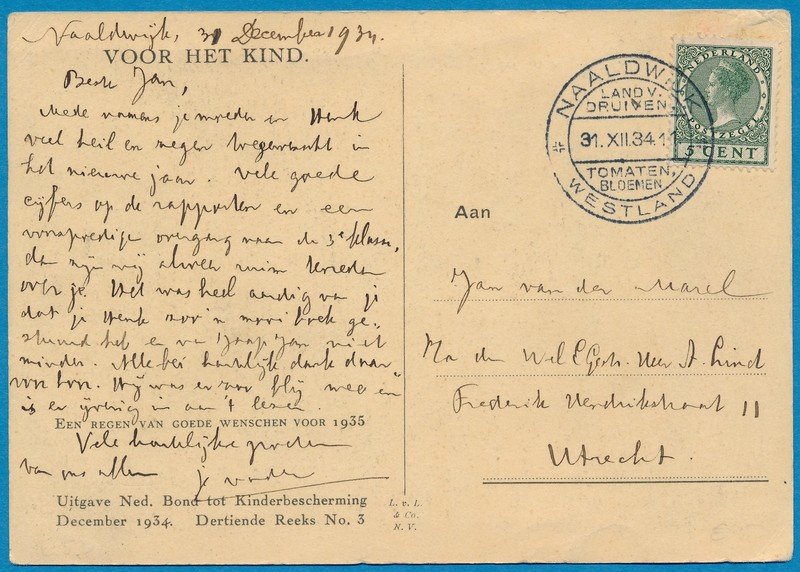 Naaldwijk, 31 December 1934.
VOOR HET KIND.
Beste Jan,
Mede namens je moeder en Henk
veel heil en zegen toegewenscht in
het nieuwe jaar. Vele goede
cijfers op de rapporten en een
voorspoedige overgang naar de 3e klasse,
dan zijn wij alweer ruim tevreden
over je. Het was heel aardig van je
dat je Henk zoo'n mooi boek ge-
stuurd heb en van Jaap Jan niet
minder. Allebei hartelijk dank daar
voor hoor. Hij was er zoo blij mee en
is er ijverig in aan 't lezen.
EEN REGEN VAN GOEDE WENSCHEN VOOR 1935
Vele hartelijke groeten
van ons allen
je vader
Uitgave Ned. Bond tot Kinderbescherming
December 1934. Dertiende Reeks No. 3
L. v. L.
& Co.
N. V.
NEDERLAND
POSTZEGEL
5 CENT
NAALDWIJK
LAND V.
DRUIVEN
31.XII.34.11
TOMATEN,
BLOEMEN
WESTLAND
Aan
Jan van der Marel
Wel E Gestr. Heer A. Lind
Frederik Hendrikstraat 11
Utrecht.